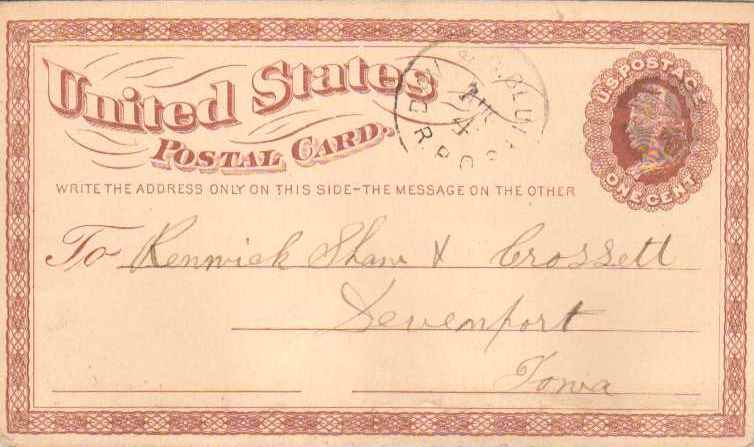 United States
POSTAL CARD.
U.S. POSTAGE
ONE CENT
WRITE THE ADDRESS ONLY ON THIS SIDE-THE MESSAGE ON THE OTHER
To Renwick Shaw & Crossett
Devenport
Iowa
R.P.O.